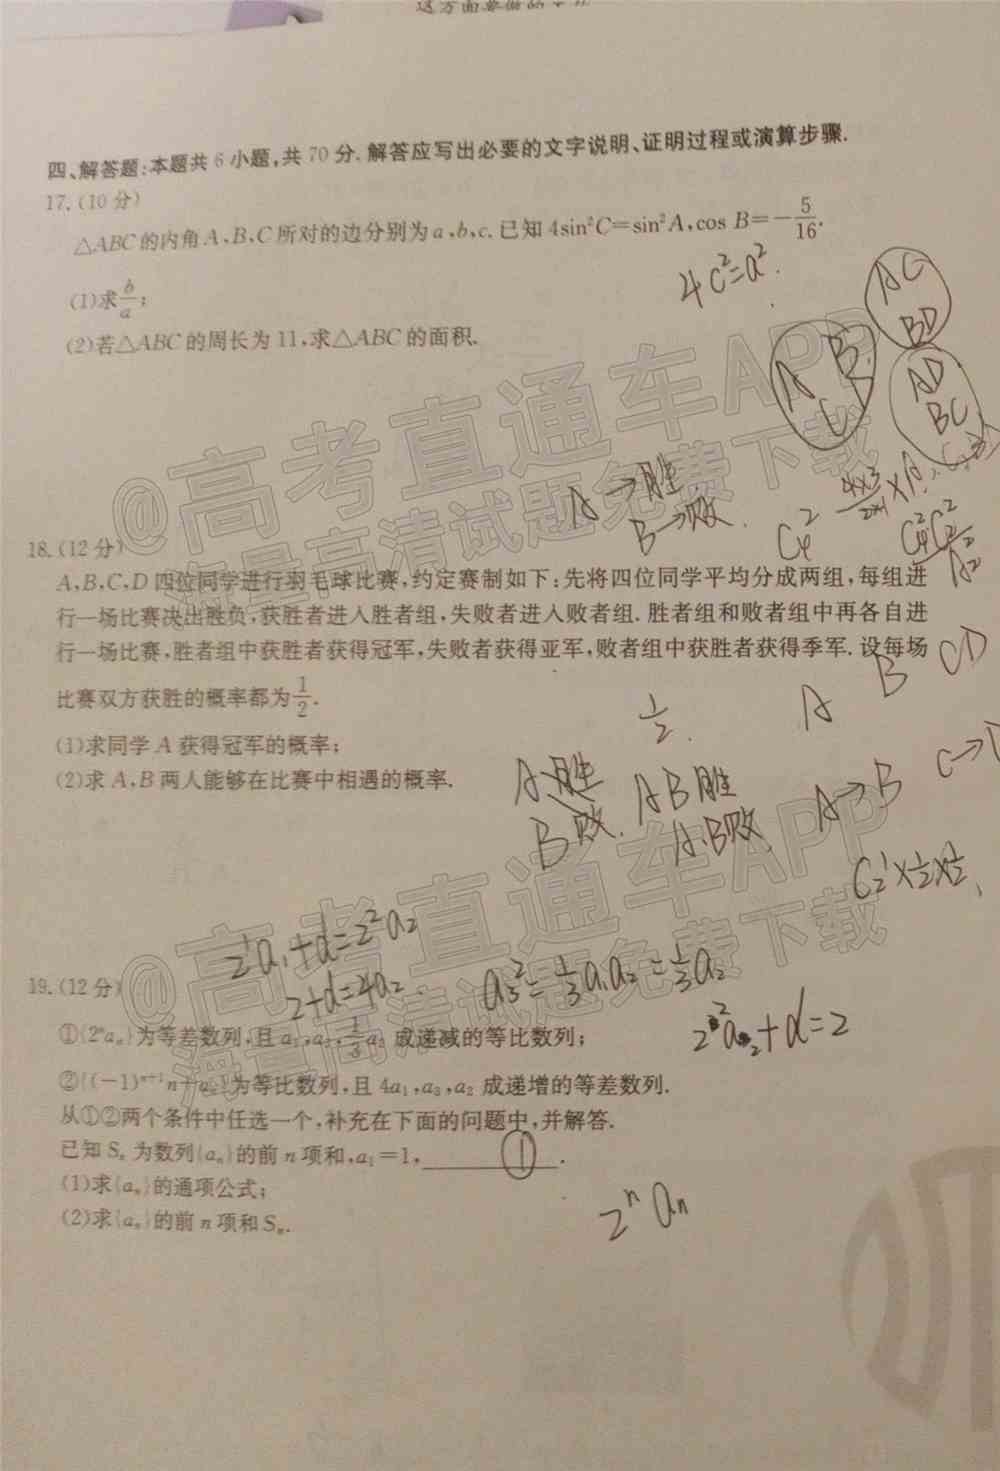 四、解答题:本题共6小题,共70分.解答应写出必要的文字说明、证明过程或演算步骤.
17.(10分)
△ABC的内角A,B,C所对的边分别为a,b,c.已知4sin²C=sin²A,cos B=-5/16.
4c²=a².
(1)求b/a;
(2)若△ABC的周长为11,求△ABC的面积.
AC
BD
A B
C
AD
BC
@高考直通车APP
海量高清试题免费下载
A→胜
B→败.
C₄²
18.(12分)
A,B,C,D四位同学进行羽毛球比赛,约定赛制如下:先将四位同学平均分成两组,每组进
行一场比赛决出胜负,获胜者进入胜者组,失败者进入败者组.胜者组和败者组中再各自进
行一场比赛,胜者组中获胜者获得冠军,失败者获得亚军,败者组中获胜者获得季军.设每场
比赛双方获胜的概率都为1/2.
1/2.
A B CD
(1)求同学A获得冠军的概率;
(2)求A,B两人能够在比赛中相遇的概率.
A胜
B败.
AB胜
A.B败
A→B
C₂¹×1/2×1/2
@高考直通车APP
海量高清试题免费下载
2¹a₁+d=2²a₂
2+d=4a₂
a₃²=1/3a₁a₂=1/3a₂
2²a₂+d=2
19.(12分)
①{2ⁿaₙ}为等差数列,且a₁,a₃,1/3a₂成递减的等比数列;
②{(-1)ⁿ⁺¹n+aₙ}为等比数列,且4a₁,a₃,a₂成递增的等差数列.
从①②两个条件中任选一个,补充在下面的问题中,并解答.
已知Sₙ为数列{aₙ}的前n项和,a₁=1,____①____.
(1)求{aₙ}的通项公式;
(2)求{aₙ}的前n项和Sₙ.
2ⁿaₙ